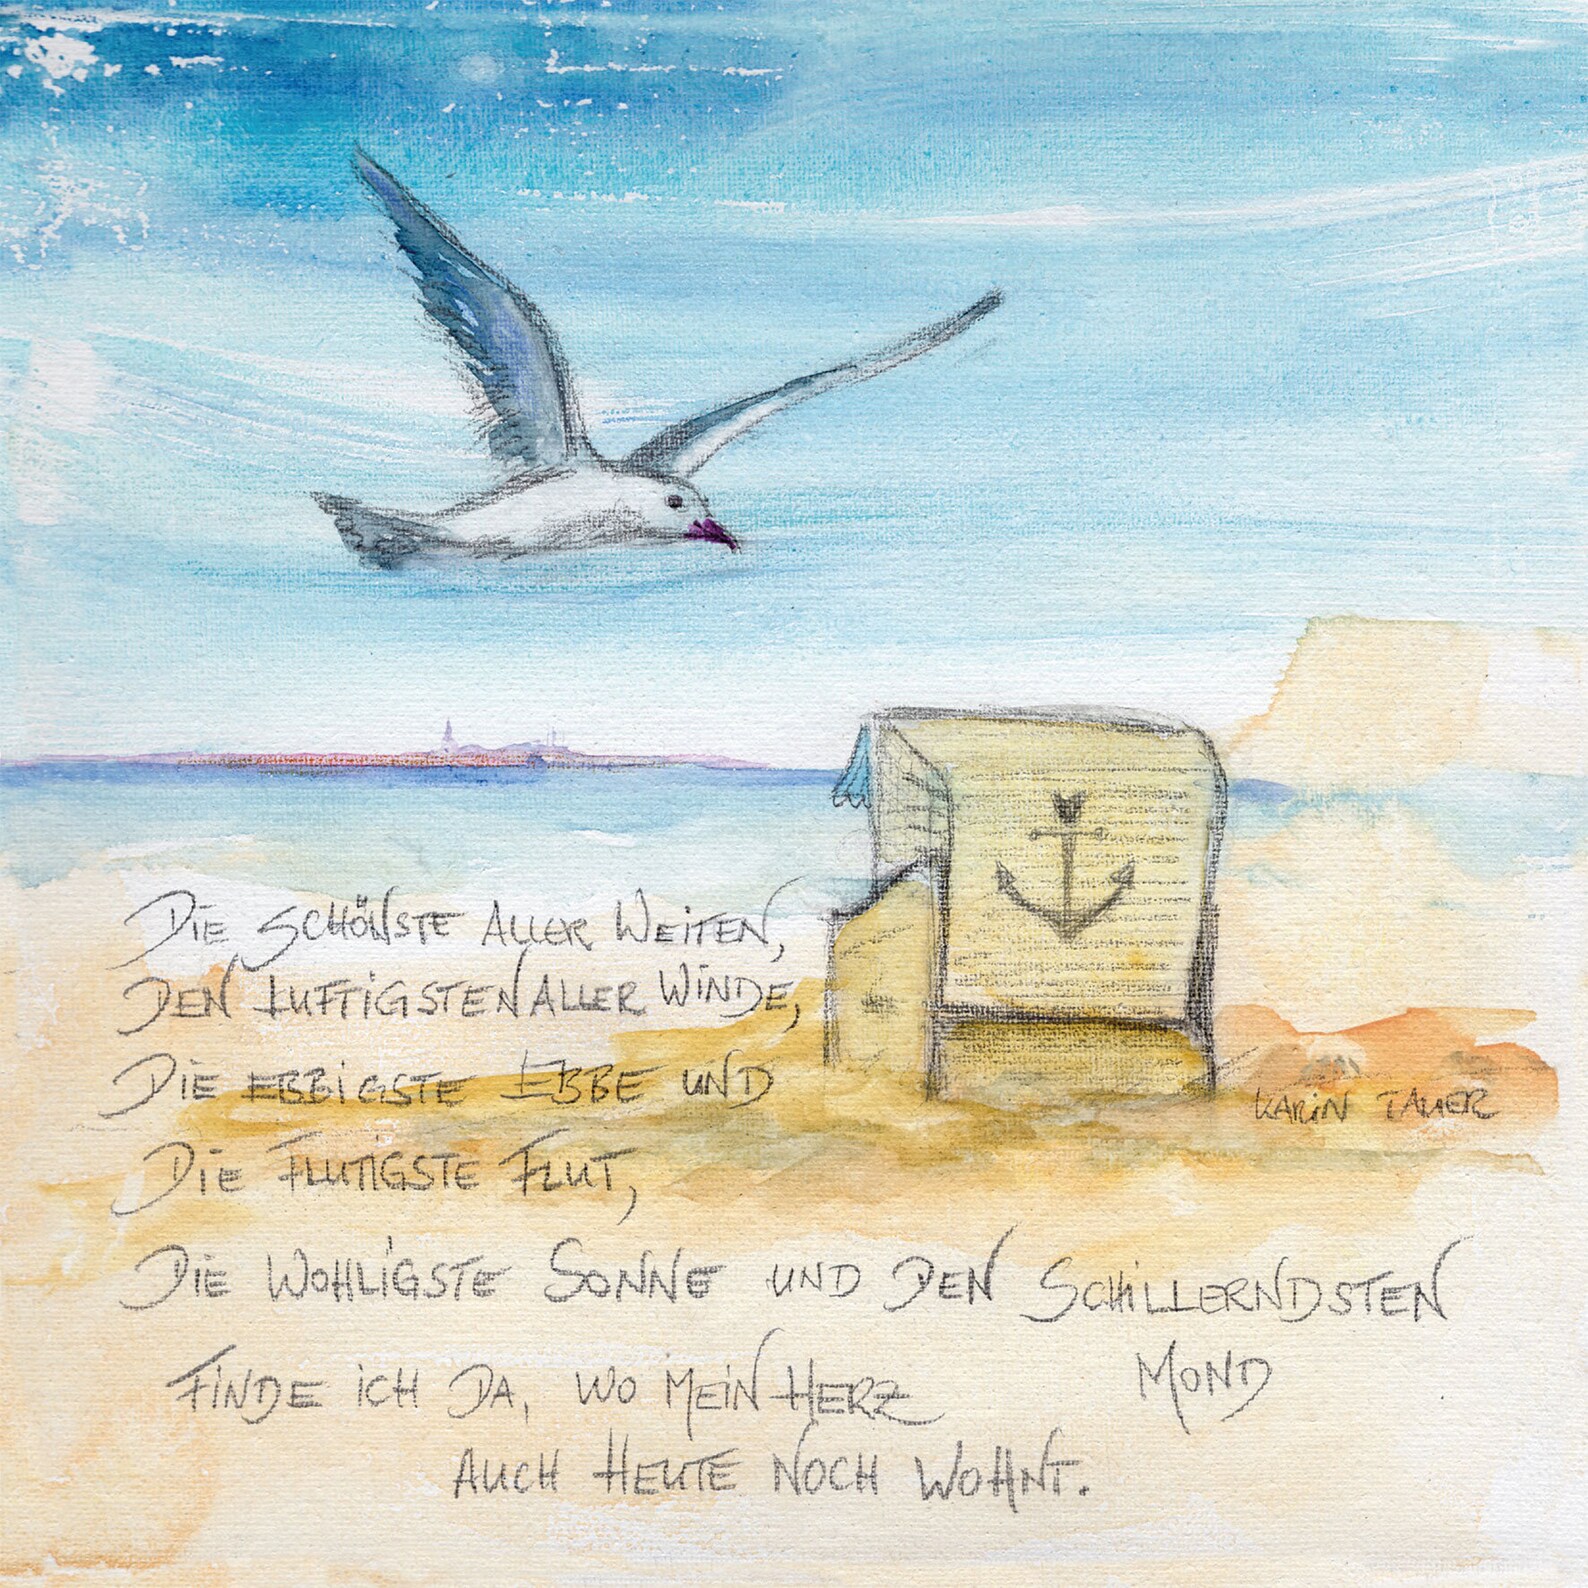 Die schönste aller Weiten,
den luftigsten aller Winde,
Die ebbigste Ebbe und
Die flutigste Flut,
Die wohligste Sonne und den schillerndsten
Mond
Finde ich da, wo mein Herz
auch heute noch wohnt.
Karin Tauer